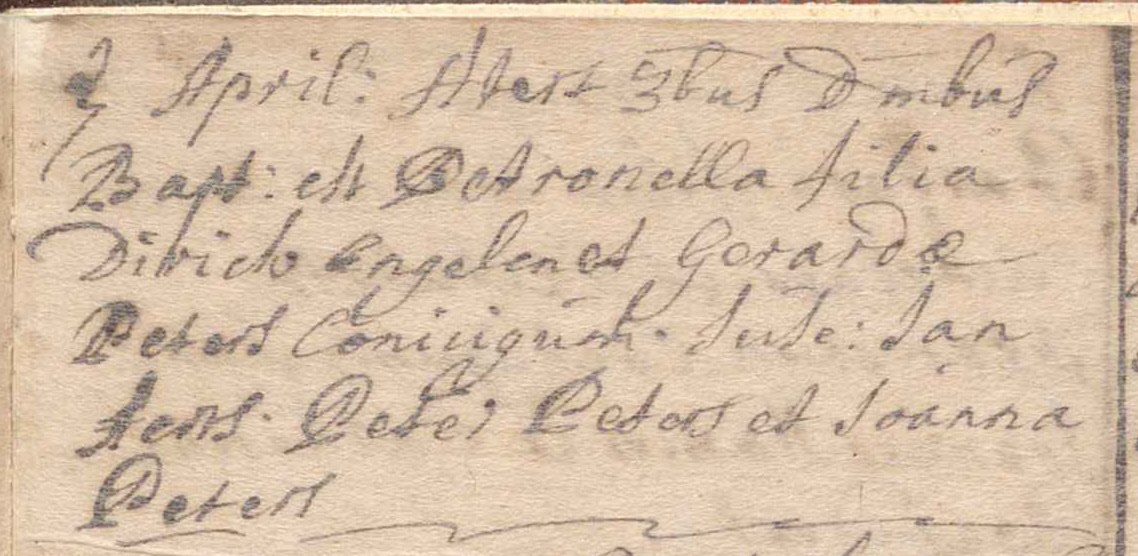 2 April: Atert 3bus Dmbus
Bapt: est Petronella filia
Dirick Engelen et Gerardæ
Peters Coniugum. Susc: Jan
Aerts. Peter Peters et Joanna
Peters